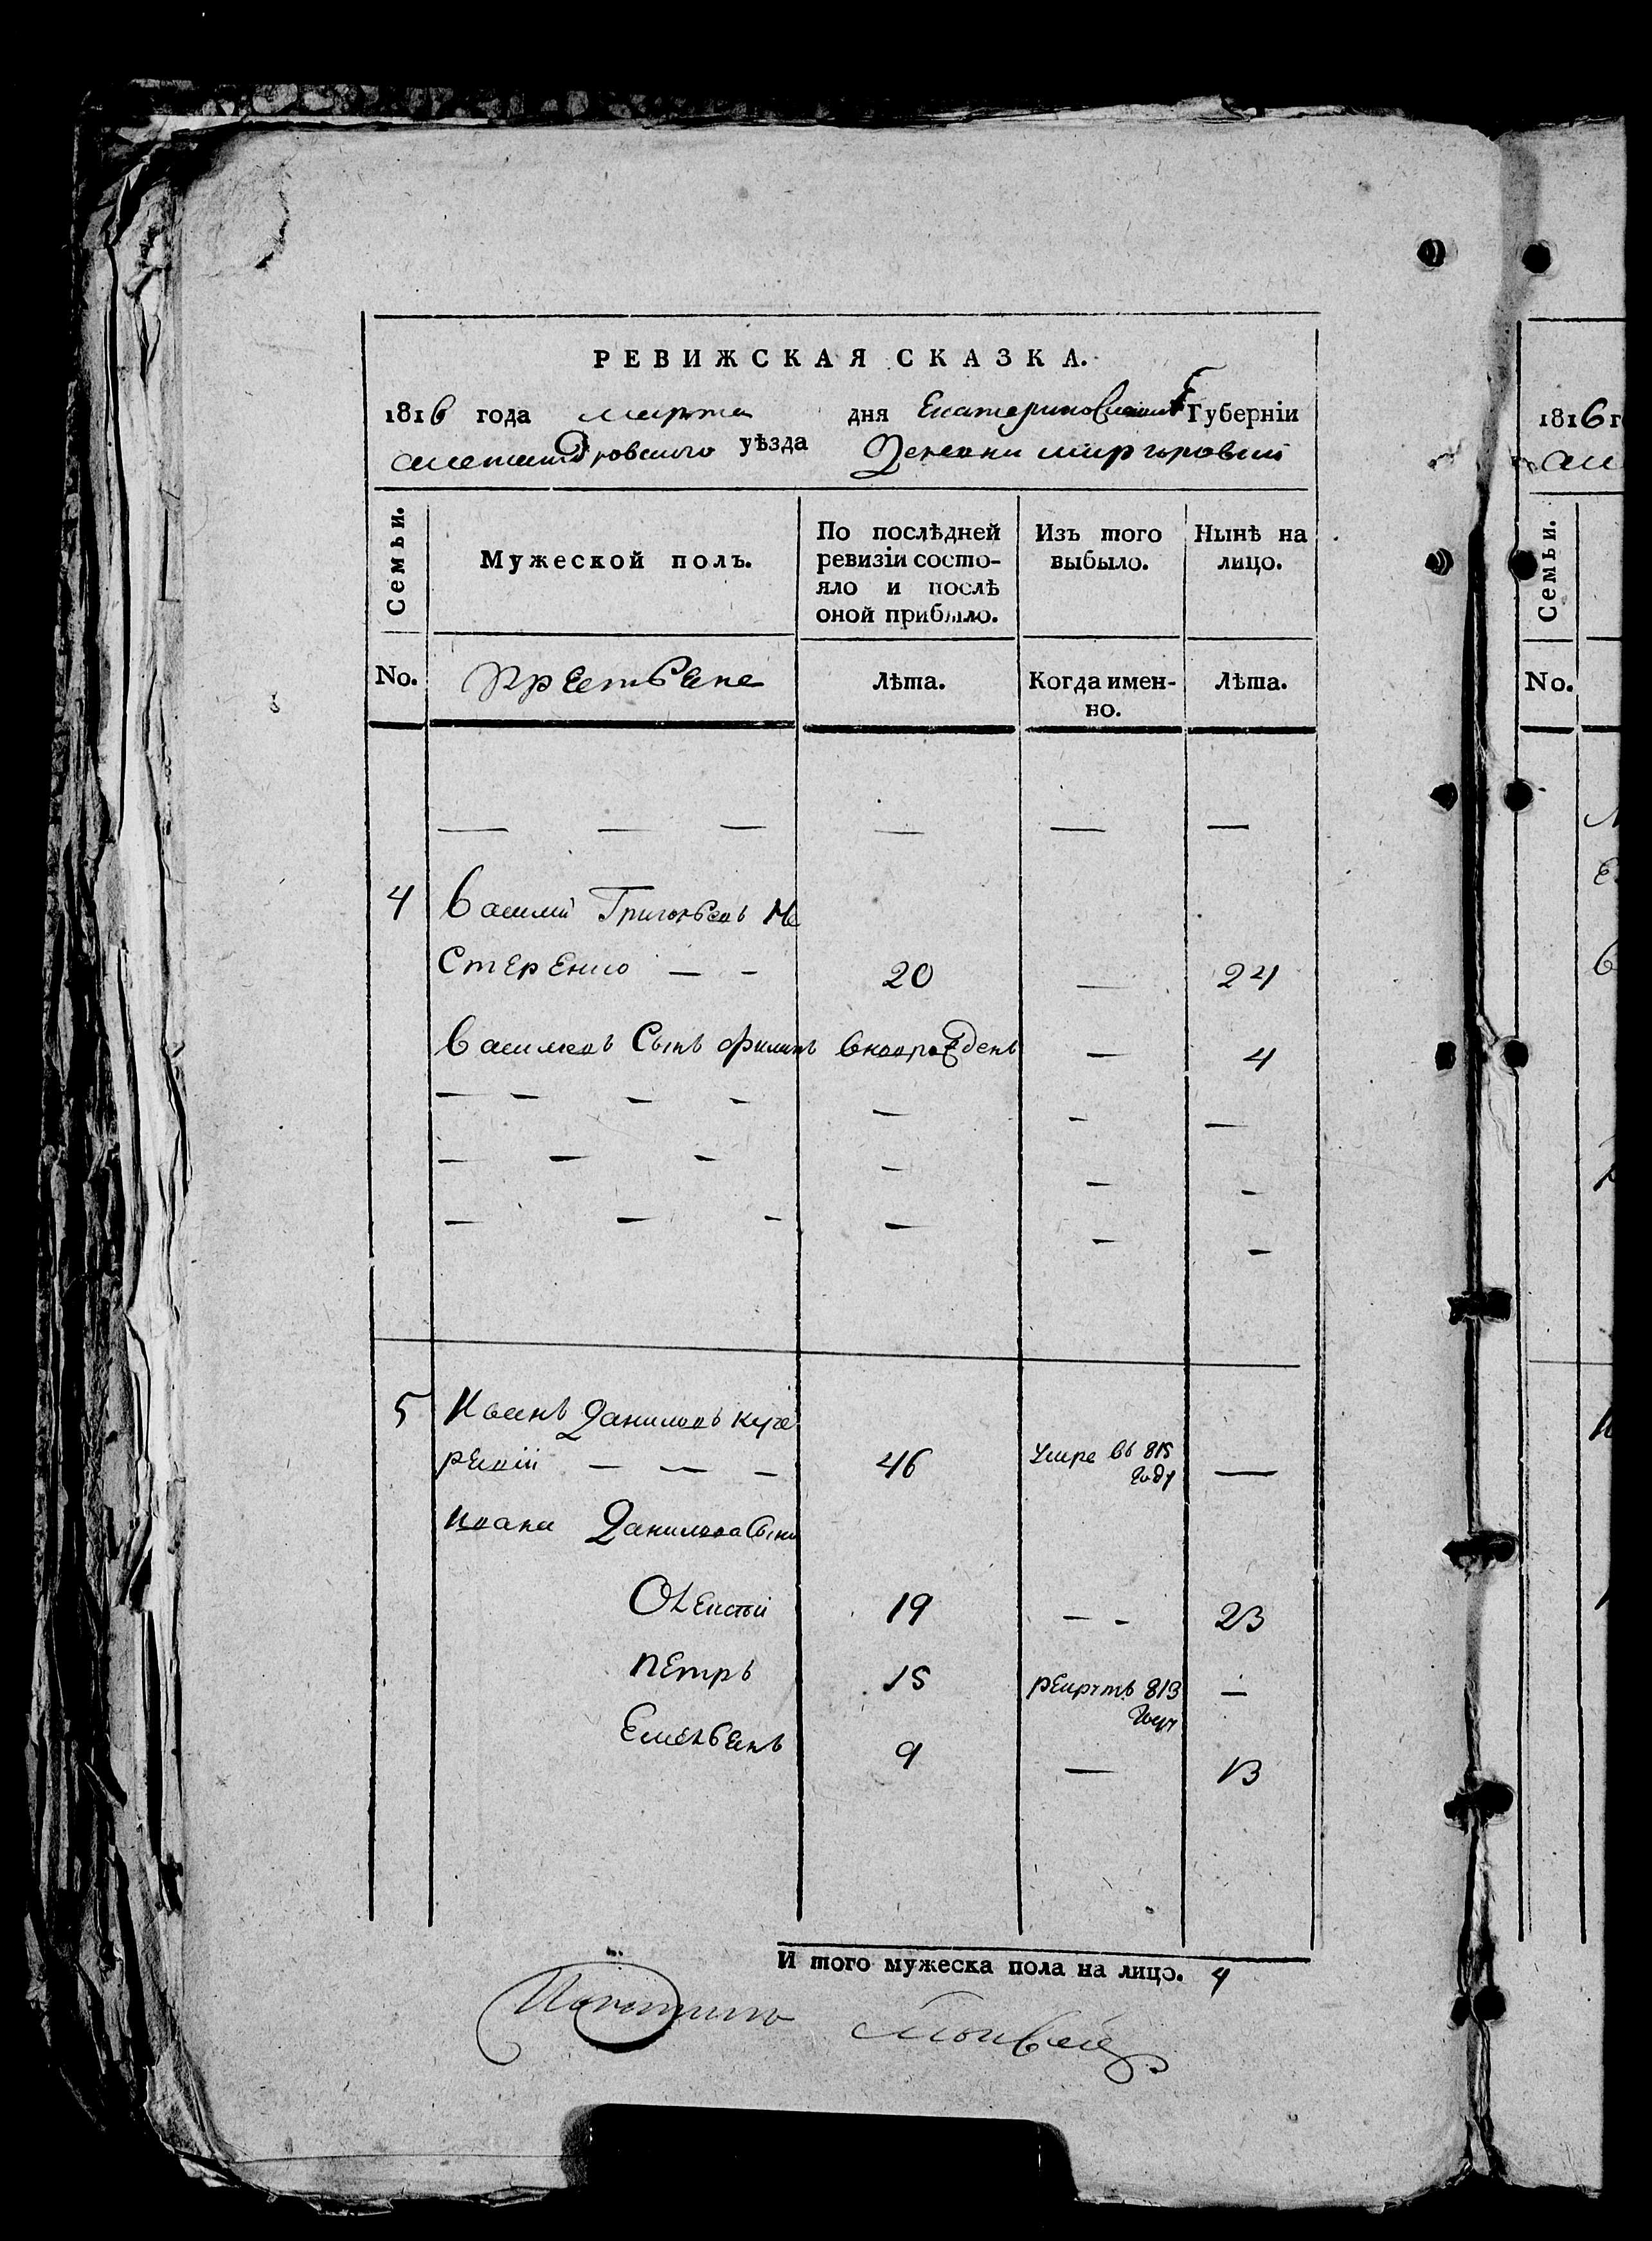 РЕВИЖСКАЯ СКАЗКА.
1816 года марта дня Екатеринославской Губерніи
александровского уѣзда Деревни миргоровки
Семьи.
Мужеской полъ.
По послѣдней ревизіи состо-
яло и послѣ
оной прибыло.
Изъ того
выбыло.
Нынѣ на
лицо.
No.
крестьяне
Лѣта.
Когда имен-
но.
Лѣта.
4 Василий Григорьевъ Не
стеренко — — 20 — 24
Васильевъ Сынъ Филипъ вновьрожденъ — 4
5 Иванъ Даниловъ
— — — 46 умре въ 815
году —
Ивана Данилова Сыны
Олексѣй 19 — - 23
петръ 15 рекрутъ 813
году —
Емельянъ 9 — 13
И того мужеска пола на лицо. 4
1816
Семьи.
No.